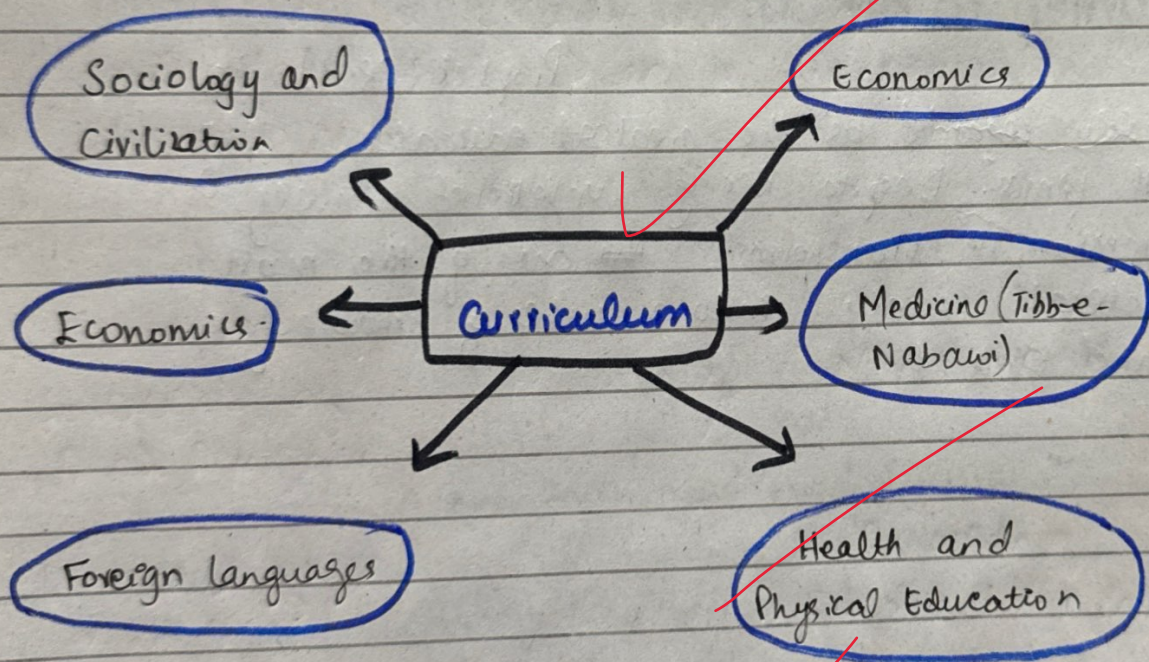 Sociology and
Civilization
Economics
Economics
Curriculum
Medicine (Tibb-e-
Nabawi)
Foreign languages
Health and
Physical Education